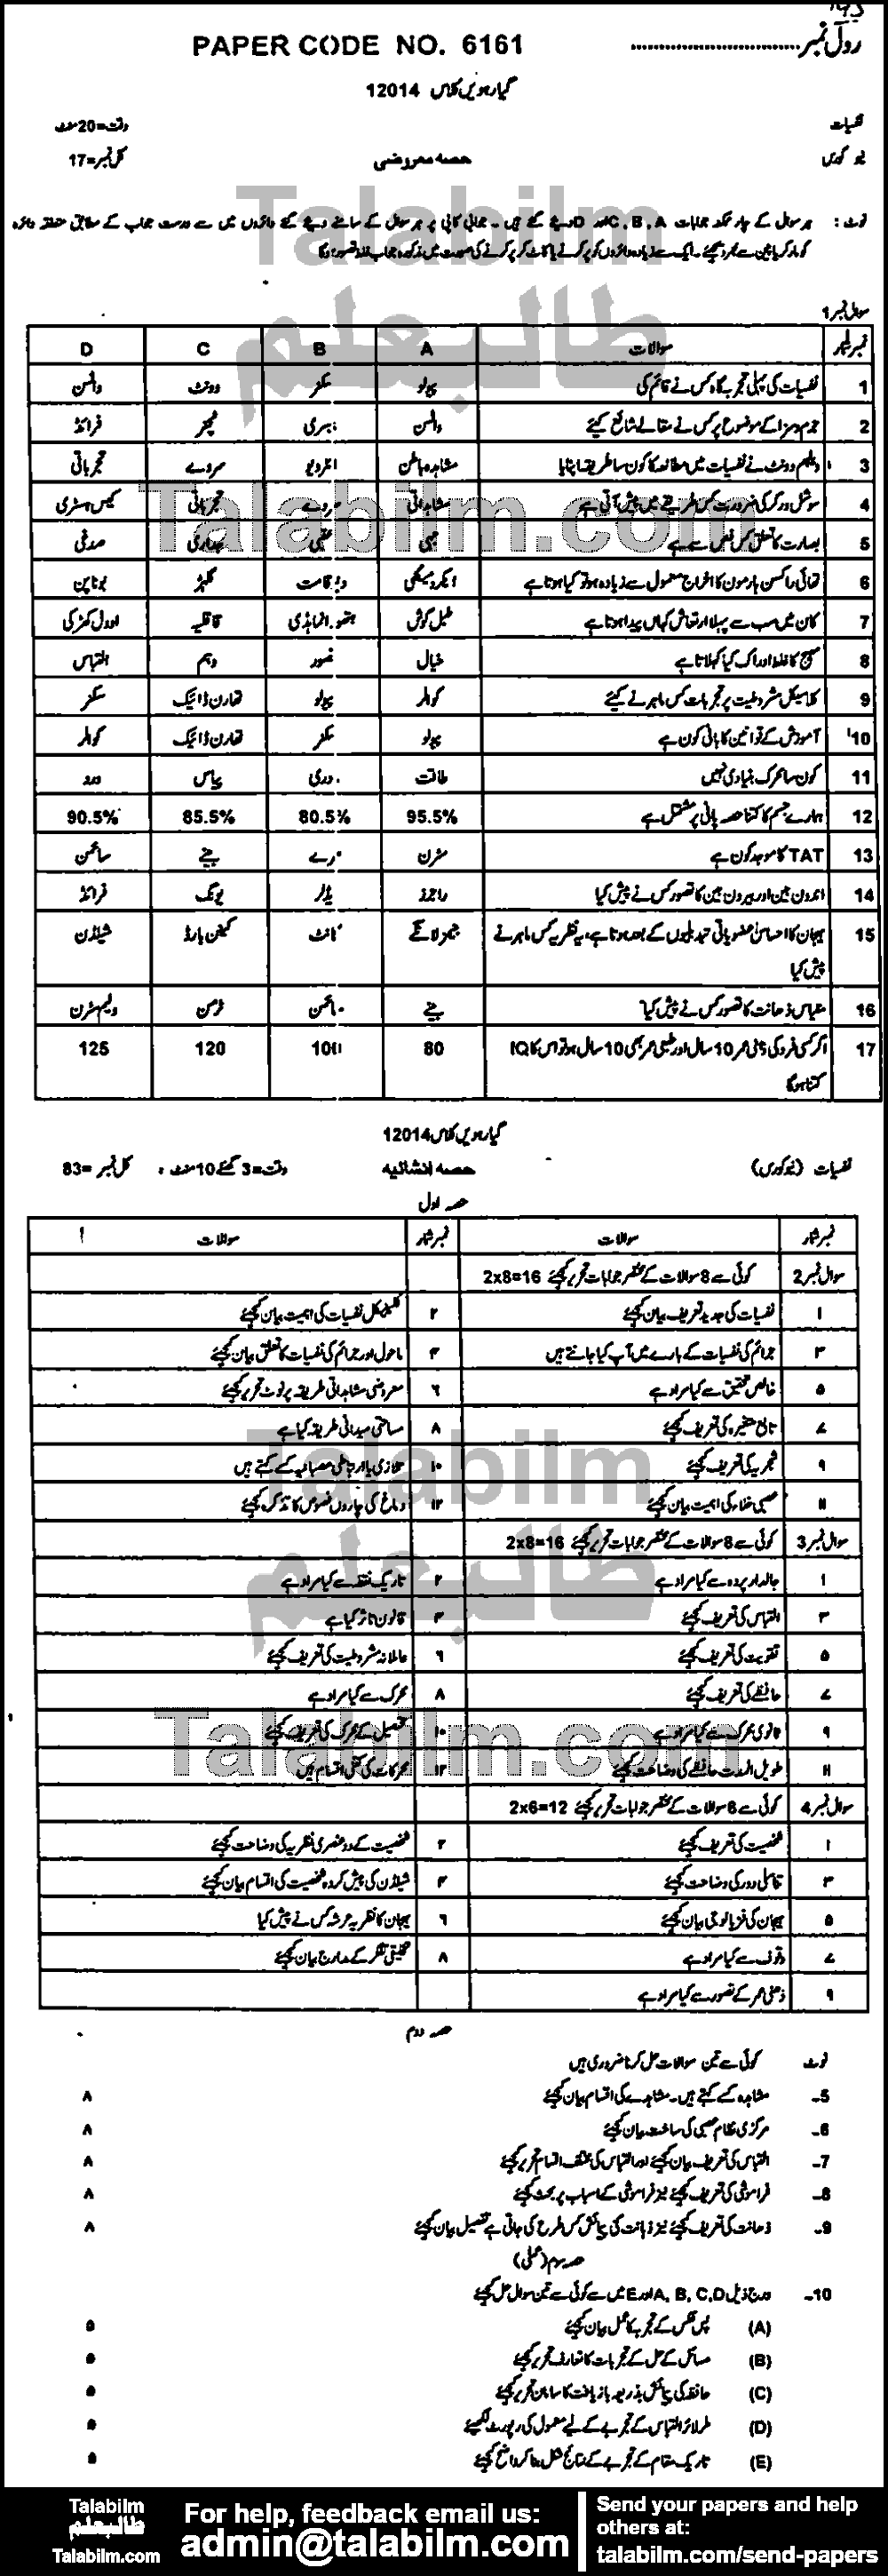 PAPER CODE NO. 6161
رول نمبر
گیارہویں کلاس 12014
نفسیات
وقت=20 منٹ
نیو کورس
حصہ معروضی
کل نمبر=17
نوٹ: ہر سوال کے چار ممکنہ جوابات C, B, A اور D دیئے گئے ہیں۔ جوابی کاپی پر ہر سوال کے سامنے دیئے گئے دائروں میں سے درست جواب کے مطابق متعلقہ دائرہ
کو مارکر یا پین سے بھر دیجئے۔ ایک سے زیادہ دائروں کو پر کرنے یا کاٹ کر پر کرنے کی صورت میں مذکورہ جواب غلط تصور ہوگا
سوال نمبر 1
نمبر شمار سوالات A B C D
1 نفسیات کی پہلی تجربہ گاہ کس نے قائم کی پیولو سکنر وونٹ واٹسن
2 جرم و سزا کے موضوع پر کس نے مقالے شائع کیئے واٹسن ہنری ٹچنر فرائڈ
3 ولہلم وونٹ نے نفسیات میں مطالعہ کا کون سا طریقہ اپنایا مشاہدہ باطن انٹرویو سروے تجرباتی
4 سوشل ورکر کی ضرورت کس طریقے میں پیش آتی ہے مشاہداتی سروے تجرباتی کیس ہسٹری
5 بصارت کا تعلق کس فص سے ہے جبہی عقبی جداری صدغی
6 تھائی راکسن ہارمون کا اخراج معمول سے زیادہ ہو تو کیا ہوتا ہے ایکرومیگلی دیو قامت گلہڑ بونا پن
7 کان میں سب سے پہلا ارتعاش کہاں پیدا ہوتا ہے طبل گوش ہتھوڑا نما ہڈی قوقلیہ اوول کھڑکی
8 مہیج کا غلط ادراک کیا کہلاتا ہے خیال تصور وہم التباس
9 کلاسیکل مشروطیت پر تجربات کس ماہر نے کیئے کوہلر پیولو تھارن ڈائیک سکنر
10 آموزش کے قوانین کا بانی کون ہے پیولو سکنر تھارن ڈائیک کوہلر
11 کون سا محرک بنیادی نہیں طاقت دوری پیاس درد
12 ہمارے جسم کا کتنا حصہ پانی پر مشتمل ہے 95.5% 80.5% 85.5% 90.5%
13 TAT کا موجد کون ہے سٹرن مرے بینے سائمن
14 اندرون بین اور بیرون بین کا تصور کس نے پیش کیا راجرز ایڈلر یونگ فرائڈ
15 ہیجان کا احساس عضویاتی تبدیلیوں کے بعد ہوتا ہے، یہ نظریہ کس ماہر نے جیمز لانگے کانٹ کینن بارڈ شیلڈن
پیش کیا
16 مقیاس ذہانت کا تصور کس نے پیش کیا بینے سائمن ٹرمن ولیم سٹرن
17 اگر کسی فرد کی ذہنی عمر 10 سال اور طبعی عمر بھی 10 سال ہو تو اس کا IQ 80 100 120 125
کتنا ہوگا
گیارہویں کلاس 12014
نفسیات (نیو کورس) حصہ انشائیہ وقت=3 گھنٹے 10 منٹ کل نمبر =83
حصہ اول
نمبر شمار سوالات نمبر شمار سوالات
سوال نمبر 2 کوئی سے 8 سوالات کے مختصر جوابات تحریر کیجئے 2x8=16
۱ نفسیات کی جدید تعریف بیان کیجئے ۲ کلینیکل نفسیات کی اہمیت بیان کیجئے
۳ جرائم کی نفسیات کے بارے میں آپ کیا جانتے ہیں ۴ ماحول اور جرائم کی نفسیات کا تعلق بیان کیجئے
۵ خالص تحقیق سے کیا مراد ہے ۶ معروضی مشاہداتی طریقہ پر نوٹ تحریر کیجئے
۷ تابع متغیرہ کی تعریف کیجئے ۸ مساحتی میدانی طریقہ کیا ہے
۹ تجربہ کی تعریف کیجئے ۱۰ تلازمی یا ارتباطی عصبانیہ کسے کہتے ہیں
۱۱ عصبی خلاء کی اہمیت بیان کیجئے ۱۲ دماغ کی چاروں فصوص کا تذکرہ کیجئے
سوال نمبر 3 کوئی سے 8 سوالات کے مختصر جوابات تحریر کیجئے 2x8=16
۱ جالدار پردہ سے کیا مراد ہے ۲ تاریک نقطہ سے کیا مراد ہے
۳ التباس کی تعریف کیجئے ۴ قانون تاثر کیا ہے
۵ تقویت کی تعریف کیجئے ۶ عاملانہ مشروطیت کی تعریف کیجئے
۷ حافظے کی تعریف کیجئے ۸ محرک سے کیا مراد ہے
۹ ثانوی محرک سے کیا مراد ہے ۱۰ تحصیل کے محرک کی تعریف کیجئے
۱۱ طویل المدت حافظے کی وضاحت کیجئے ۱۲ محرکات کی کتنی اقسام ہیں
سوال نمبر 4 کوئی سے 6 سوالات کے مختصر جوابات تحریر کیجئے 2x6=12
۱ شخصیت کی تعریف کیجئے ۲ شخصیت کے دو عنصری نظریہ کی وضاحت کیجئے
۳ تناسلی دور کی وضاحت کیجئے ۴ شیلڈن کی پیش کردہ شخصیت کی اقسام بیان کیجئے
۵ ہیجان کی فزیالوجی بیان کیجئے ۶ ہیجان کا نظریہ عرشہ کس نے پیش کیا
۷ وقوف سے کیا مراد ہے ۸ تخلیقی تفکر کے مدارج بیان کیجئے
۹ ذہنی عمر کے تصور سے کیا مراد ہے
حصہ دوم
نوٹ کوئی سے تین سوالات حل کرنا ضروری ہیں
5۔ مشاہدہ کسے کہتے ہیں۔ مشاہدے کی اقسام بیان کیجئے ۸
6۔ مرکزی نظام عصبی کی ساخت بیان کیجئے ۸
7۔ التباس کی تعریف بیان کیجئے اور التباس کی مختلف اقسام تحریر کیجئے ۸
8۔ فراموشی کی تعریف کیجئے نیز فراموشی کے اسباب پر بحث کیجئے ۸
9۔ ذہانت کی تعریف کیجئے نیز ذہانت کی پیمائش کس طرح کی جاتی ہے تفصیل بیان کیجئے ۸
حصہ سوم (عملی)
10۔ درج ذیل A, B, C, D اور E میں سے کوئی سے تین سوال حل کیجئے
(A) پس عکس کے تجربے کا عمل بیان کیجئے ۵
(B) مسائل کے حل کے تجربات کا تعارف تحریر کیجئے ۵
(C) حافظہ کی پیمائش بذریعہ بازیافت کا سامان تحریر کیجئے ۵
(D) ملرلائر التباس کے تجربے کے لیے معمول کی رپورٹ لکھیئے ۵
(E) تاریک مقام کے تجربے کے نتائج شکل بنا کر واضح کیجئے ۵
Talabilm
طالبعلم
Talabilm.com
Talabilm
طالبعلم
Talabilm.com
Talabilm
طالبعلم
Talabilm.com
For help, feedback email us:
admin@talabilm.com
Send your papers and help
others at:
talabilm.com/send-papers